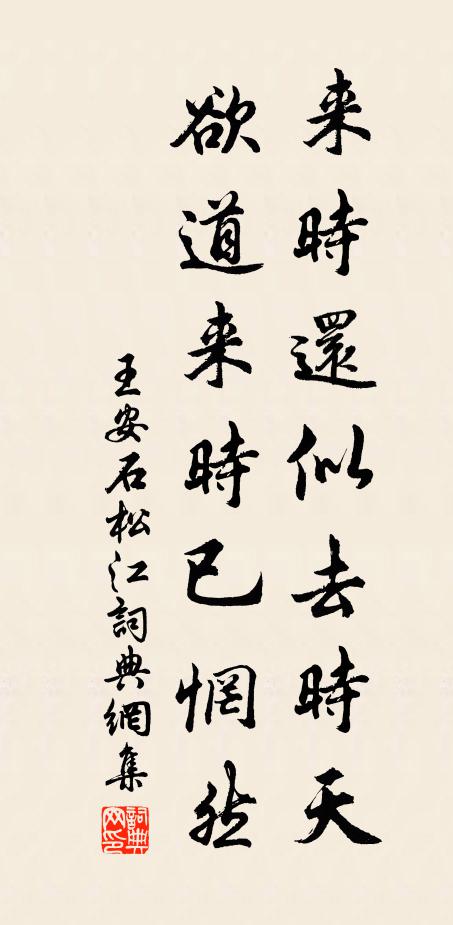 来時還似去時天
欲道来時已惘然
王安石松江詞典網集
詞典网印